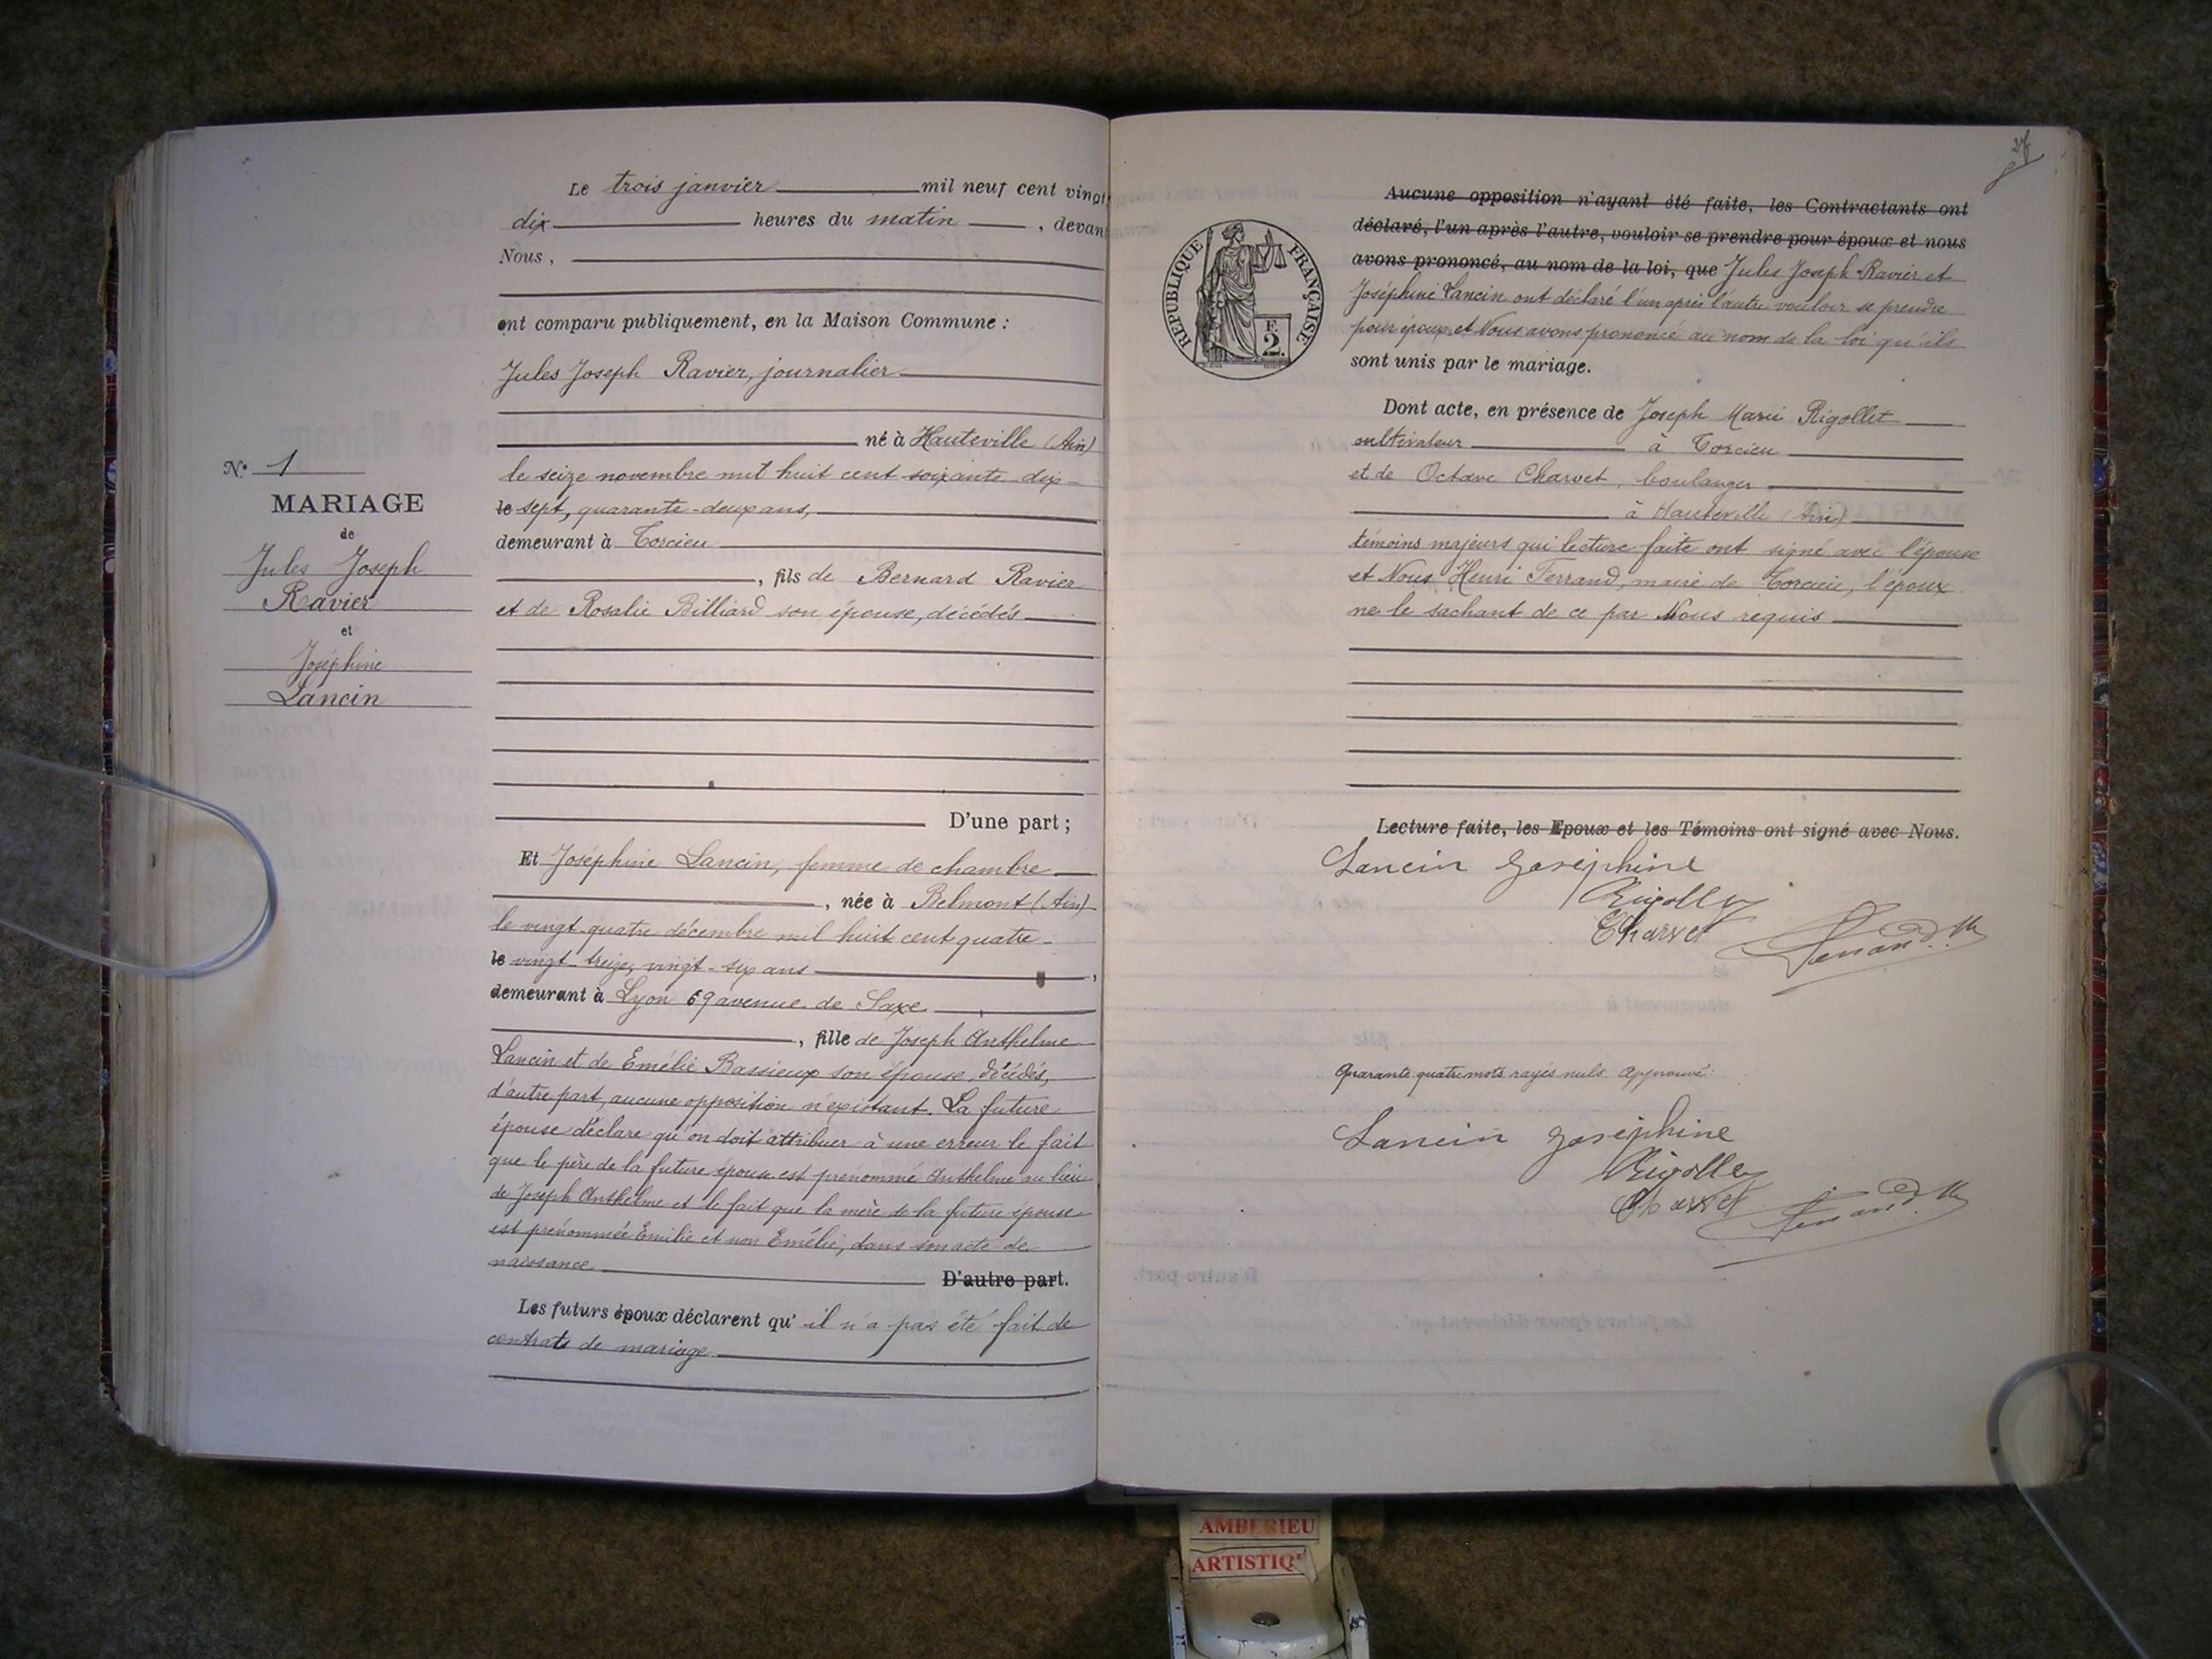 Le trois janvier mil neuf cent vingt
dix heures du matin, devant
Nous,
ont comparu publiquement, en la Maison Commune :
Jules Joseph Ravier, journalier
né à Hauteville (Ain)
le seize novembre mil huit cent soixante dix-
le sept, quarante-deux ans,
demeurant à Torcieu
, fils de Bernard Ravier
et de Rosalie Billiard son épouse, décédés
D'une part ;
N° 1
MARIAGE
de
Jules Joseph
Ravier
et
Joséphine
Lancin
Et Joséphine Lancin, femme de chambre
, née à Belmont (Ain)
le vingt-quatre décembre mil huit cent quatre-
le vingt-treize, vingt-six ans,
demeurant à Lyon 69 avenue de Saxe
, fille de Joseph Anthelme
Lancin et de Emélie Bassieux son épouse, décédés,
d'autre part, aucune opposition n'existant. La future
épouse déclare qu'on doit attribuer à une erreur le fait
que le père de la future épouse est prénommé Anthelme au lieu
de Joseph Anthelme et le fait que la mère de la future épouse
est prénommée Emilie et non Emélie, dans son acte de
naissance D'autre part.
Les futurs époux déclarent qu'il n'a pas été fait de
contrats de mariage
REPUBLIQUE FRANÇAISE
F.
2.
Aucune opposition n'ayant été faite, les Contractants ont
déclaré, l'un après l'autre, vouloir se prendre pour époux et nous
avons prononcé, au nom de la loi, que Jules Joseph Ravier et
Joséphine Lancin ont déclaré l'un après l'autre vouloir se prendre
pour époux et Nous avons prononcé au nom de la loi qu'ils
sont unis par le mariage.
Dont acte, en présence de Joseph Marie Rigollet
cultivateur à Torcieu
et de Octave Charvet, boulanger
à Hauteville (Ain)
témoins majeurs qui lecture faite ont signé avec l'épouse
et Nous Henri Ferrand, maire de Torcieu, l'époux
ne le sachant de ce par Nous requis
Lecture faite, les Epoux et les Témoins ont signé avec Nous.
Lancin Joséphine
Rigollet
Charvet
Ferrand
Quarante quatre mots rayés nuls. Approuvé :
Lancin Joséphine
Rigollet
Charvet
Ferrand
AMBERIEU
ARTISTIQ'